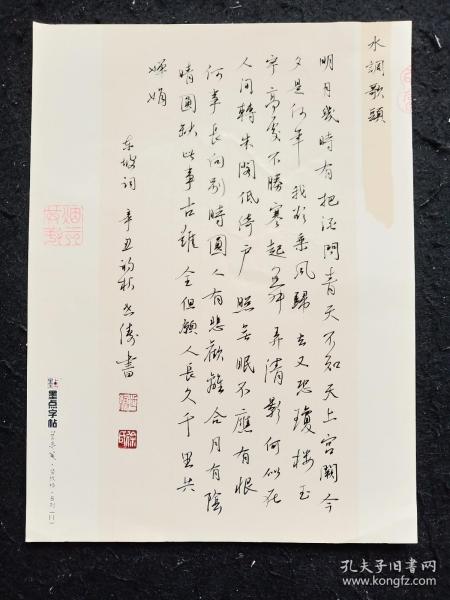 水調歌頭
明月幾時有把酒問青天不知天上宮闕今
夕是何年我欲乘風歸去又恐瓊樓玉
宇高處不勝寒起舞弄清影何似在
人間轉朱閣低綺戶照無眠不應有恨
何事長向別時圓人有悲歡離合月有陰
晴圓缺此事古難全但願人長久千里共
嬋娟
東坡詞辛丑初秋書
墨点字帖
孔夫子旧书网
www.kongfz.com